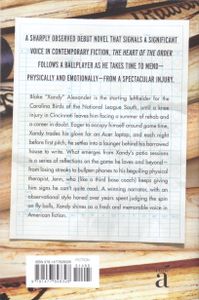 A SHARPLY OBSERVED DEBUT NOVEL THAT SIGNALS A SIGNIFICANT
VOICE IN CONTEMPORARY FICTION, THE HEART OF THE ORDER
FOLLOWS A BALLPLAYER AS HE TAKES TIME TO MEND—
PHYSICALLY AND EMOTIONALLY—FROM A SPECTACULAR INJURY.
Blake "Xandy" Alexander is the starting leftfielder for the
Carolina Birds of the National League South, until a knee
injury in Cincinnati leaves him facing a summer of rehab and
a career in doubt. Eager to occupy himself around game time,
Xandy trades his glove for an Acer laptop, and each night
before first pitch, he settles into a lounger behind his borrowed
house to write. What emerges from Xandy's patio sessions
is a series of reflections on the game he loves and beyond—
from losing streaks to bullpen phones to his beguiling physical
therapist, Jenn, who (like a third base coach) keeps giving
him signs he can't quite read. A winning narrator, with an
observational style honed over years spent judging the spin
on fly balls, Xandy shines as a fresh and memorable voice in
American fiction.
FICTION
a